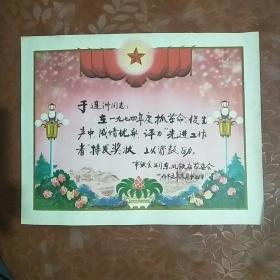 于连洲同志：
在一九七四年度抓革命，促生
产中，成绩优秀，评为"先进工作
者"特发奖状，以资鼓励。
市饮食公司东风饭店革委会
一九七五年